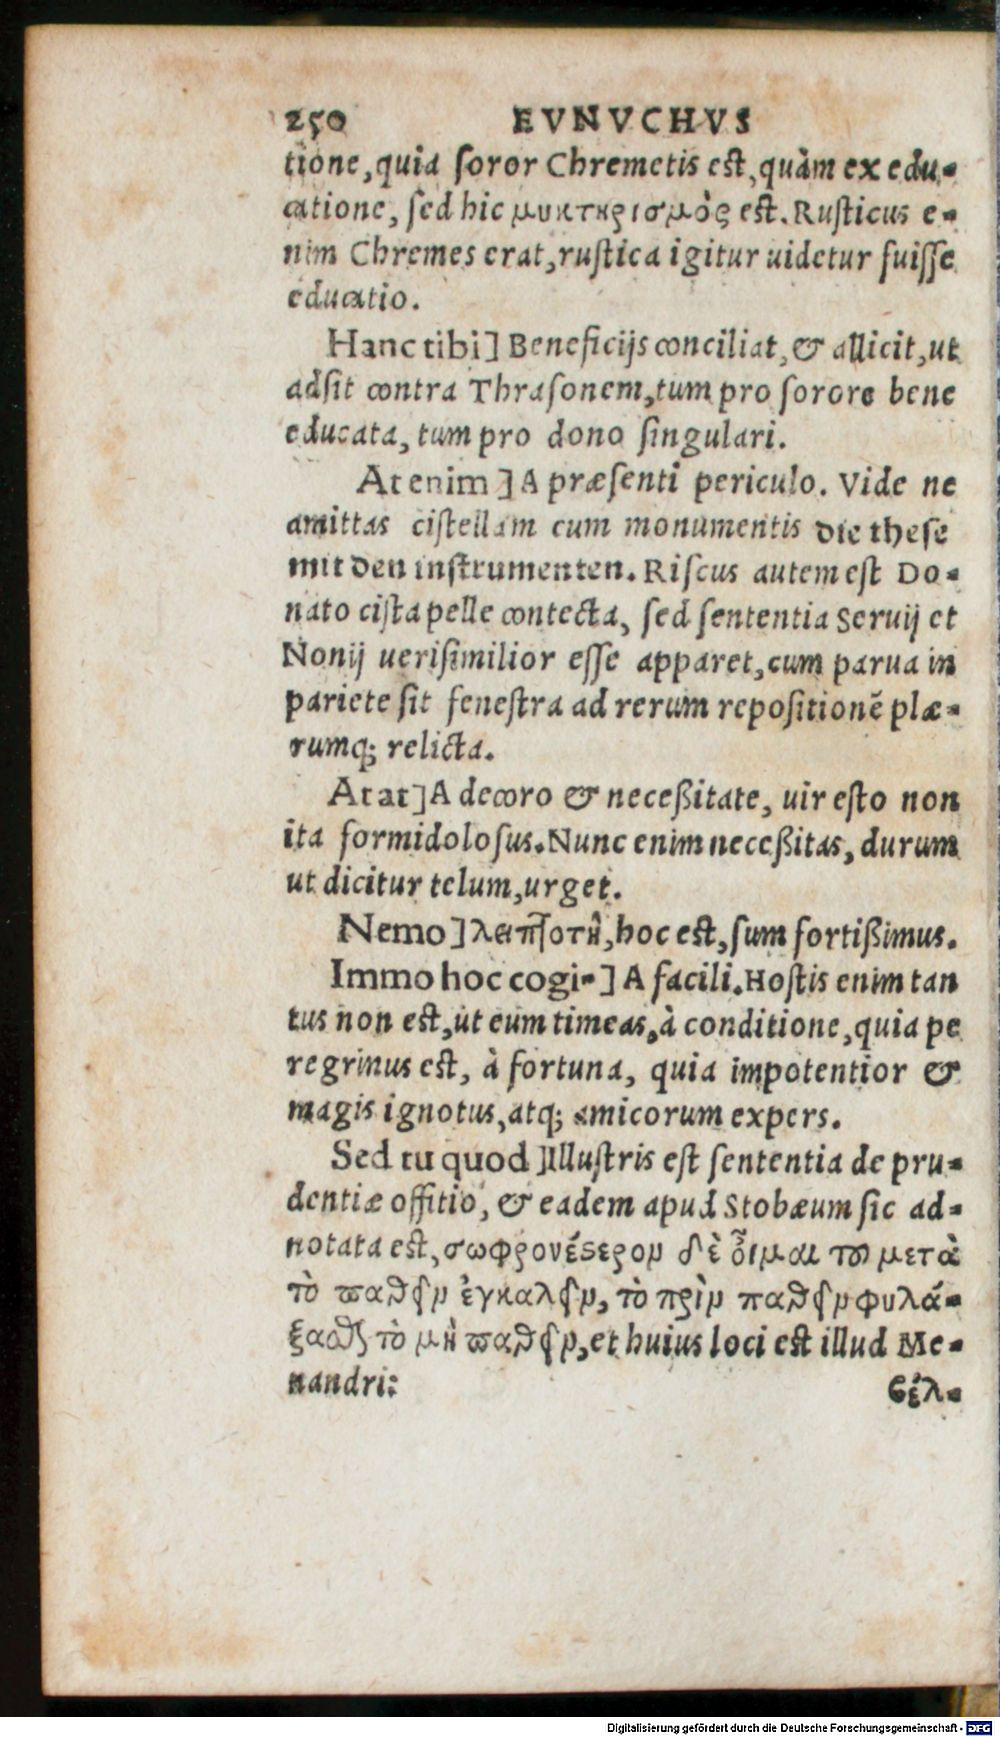 250 EVNVCHVS
tione, quia soror Chremetis est, quàm ex edu-
catione, sed hic μυκτηρισμὸς est. Rusticus e-
nim Chremes erat, rustica igitur uidetur fuisse
educatio.
Hanc tibi] Beneficijs conciliat, & allicit, ut
adsit contra Thrasonem, tum pro sorore bene
educata, tum pro dono singulari.
At enim] A præsenti periculo. Vide ne
amittas cistellam cum monumentis die these
mit den instrumenten. Riscus autem est Do-
nato cista pelle contecta, sed sententia Seruij et
Nonij uerisimilior esse apparet, cum parua in
pariete sit fenestra ad rerum repositionē plæ-
rumq; relicta.
Atat] A decoro & neceßitate, uir esto non
ita formidolosus. Nunc enim neceßitas, durum
ut dicitur telum, urget.
Nemo] hoc est, sum fortißimus.
Immo hoc cogi-] A facili. Hostis enim tan
tus non est, ut eum timeas, à conditione, quia pe
regrinus est, à fortuna, quia impotentior &
magis ignotus, atq; amicorum expers.
Sed tu quod] Illustris est sententia de pru-
dentiæ offitio, & eadem apud Stobæum sic ad-
notata est, σωφρονέστερον δὲ οἶμαι τοῦ μετὰ
τὸ παθεῖν ἐγκαλεῖν, τὸ πρὶν παθεῖν φυλά-
ξασθαι τὸ μὴ παθεῖν, et huius loci est illud Me-
nandri:
βέλ-
Digitalisierung gefördert durch die Deutsche Forschungsgemeinschaft - DFG